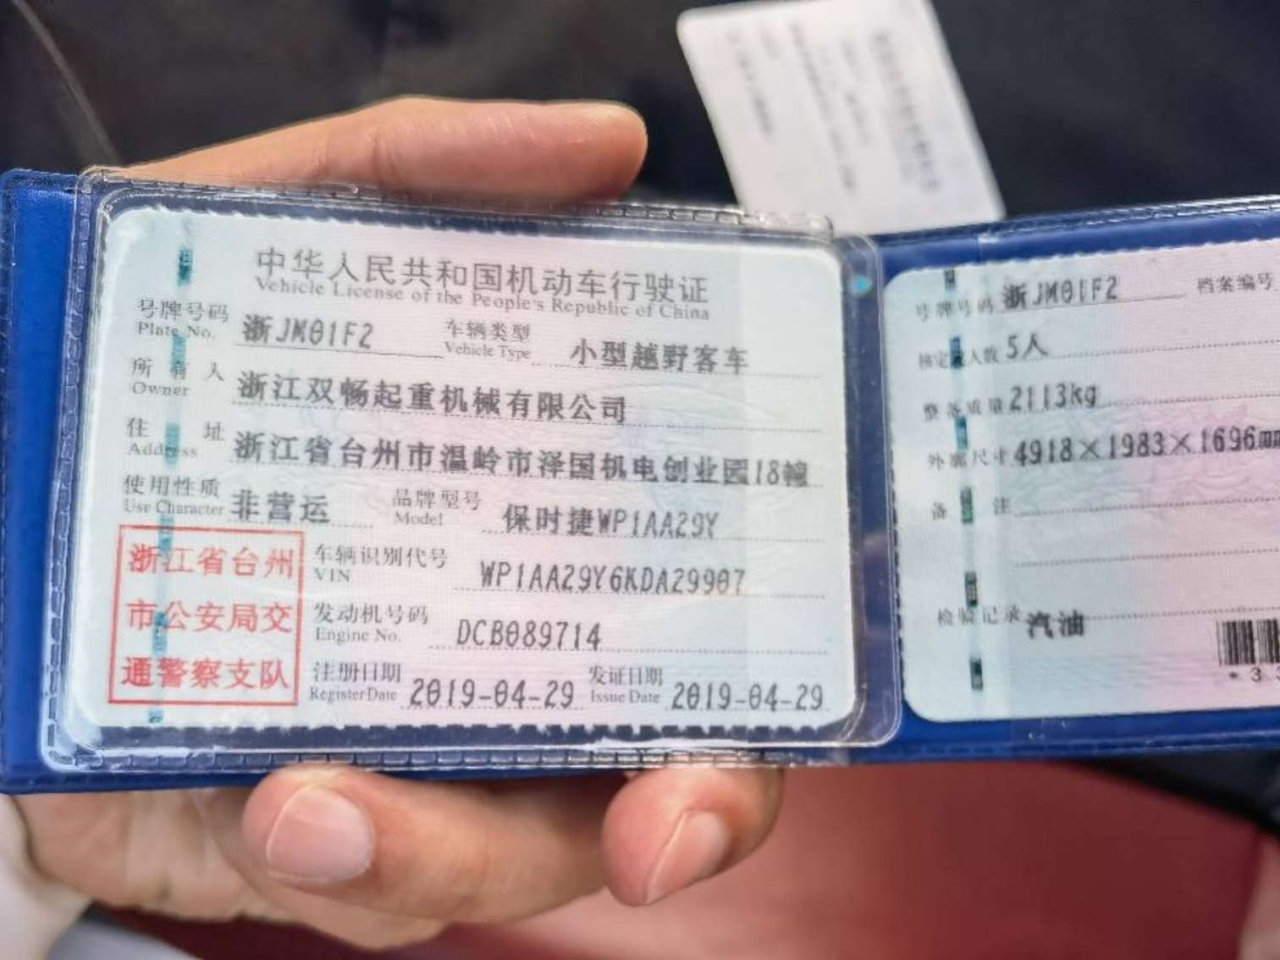 中华人民共和国机动车行驶证
Vehicle License of the People's Republic of China
号牌号码 浙JM01F2 车辆类型 小型越野客车
Plate No. Vehicle Type
所有人 浙江双畅起重机械有限公司
Owner
住址 浙江省台州市温岭市泽国机电创业园18幢
Address
使用性质 非营运 品牌型号 保时捷WP1AA29Y
Use Character Model
浙江省台州
市公安局交
通警察支队
车辆识别代号 WP1AA29Y6KDA29907
VIN
发动机号码 DCB089714
Engine No.
注册日期 2019-04-29 发证日期 2019-04-29
Register Date Issue Date
号牌号码 浙JM01F2 档案编号
核定人数 5人
整备质量 2113kg
外廓尺寸 4918×1983×1696mm
备注
检验记录 汽油